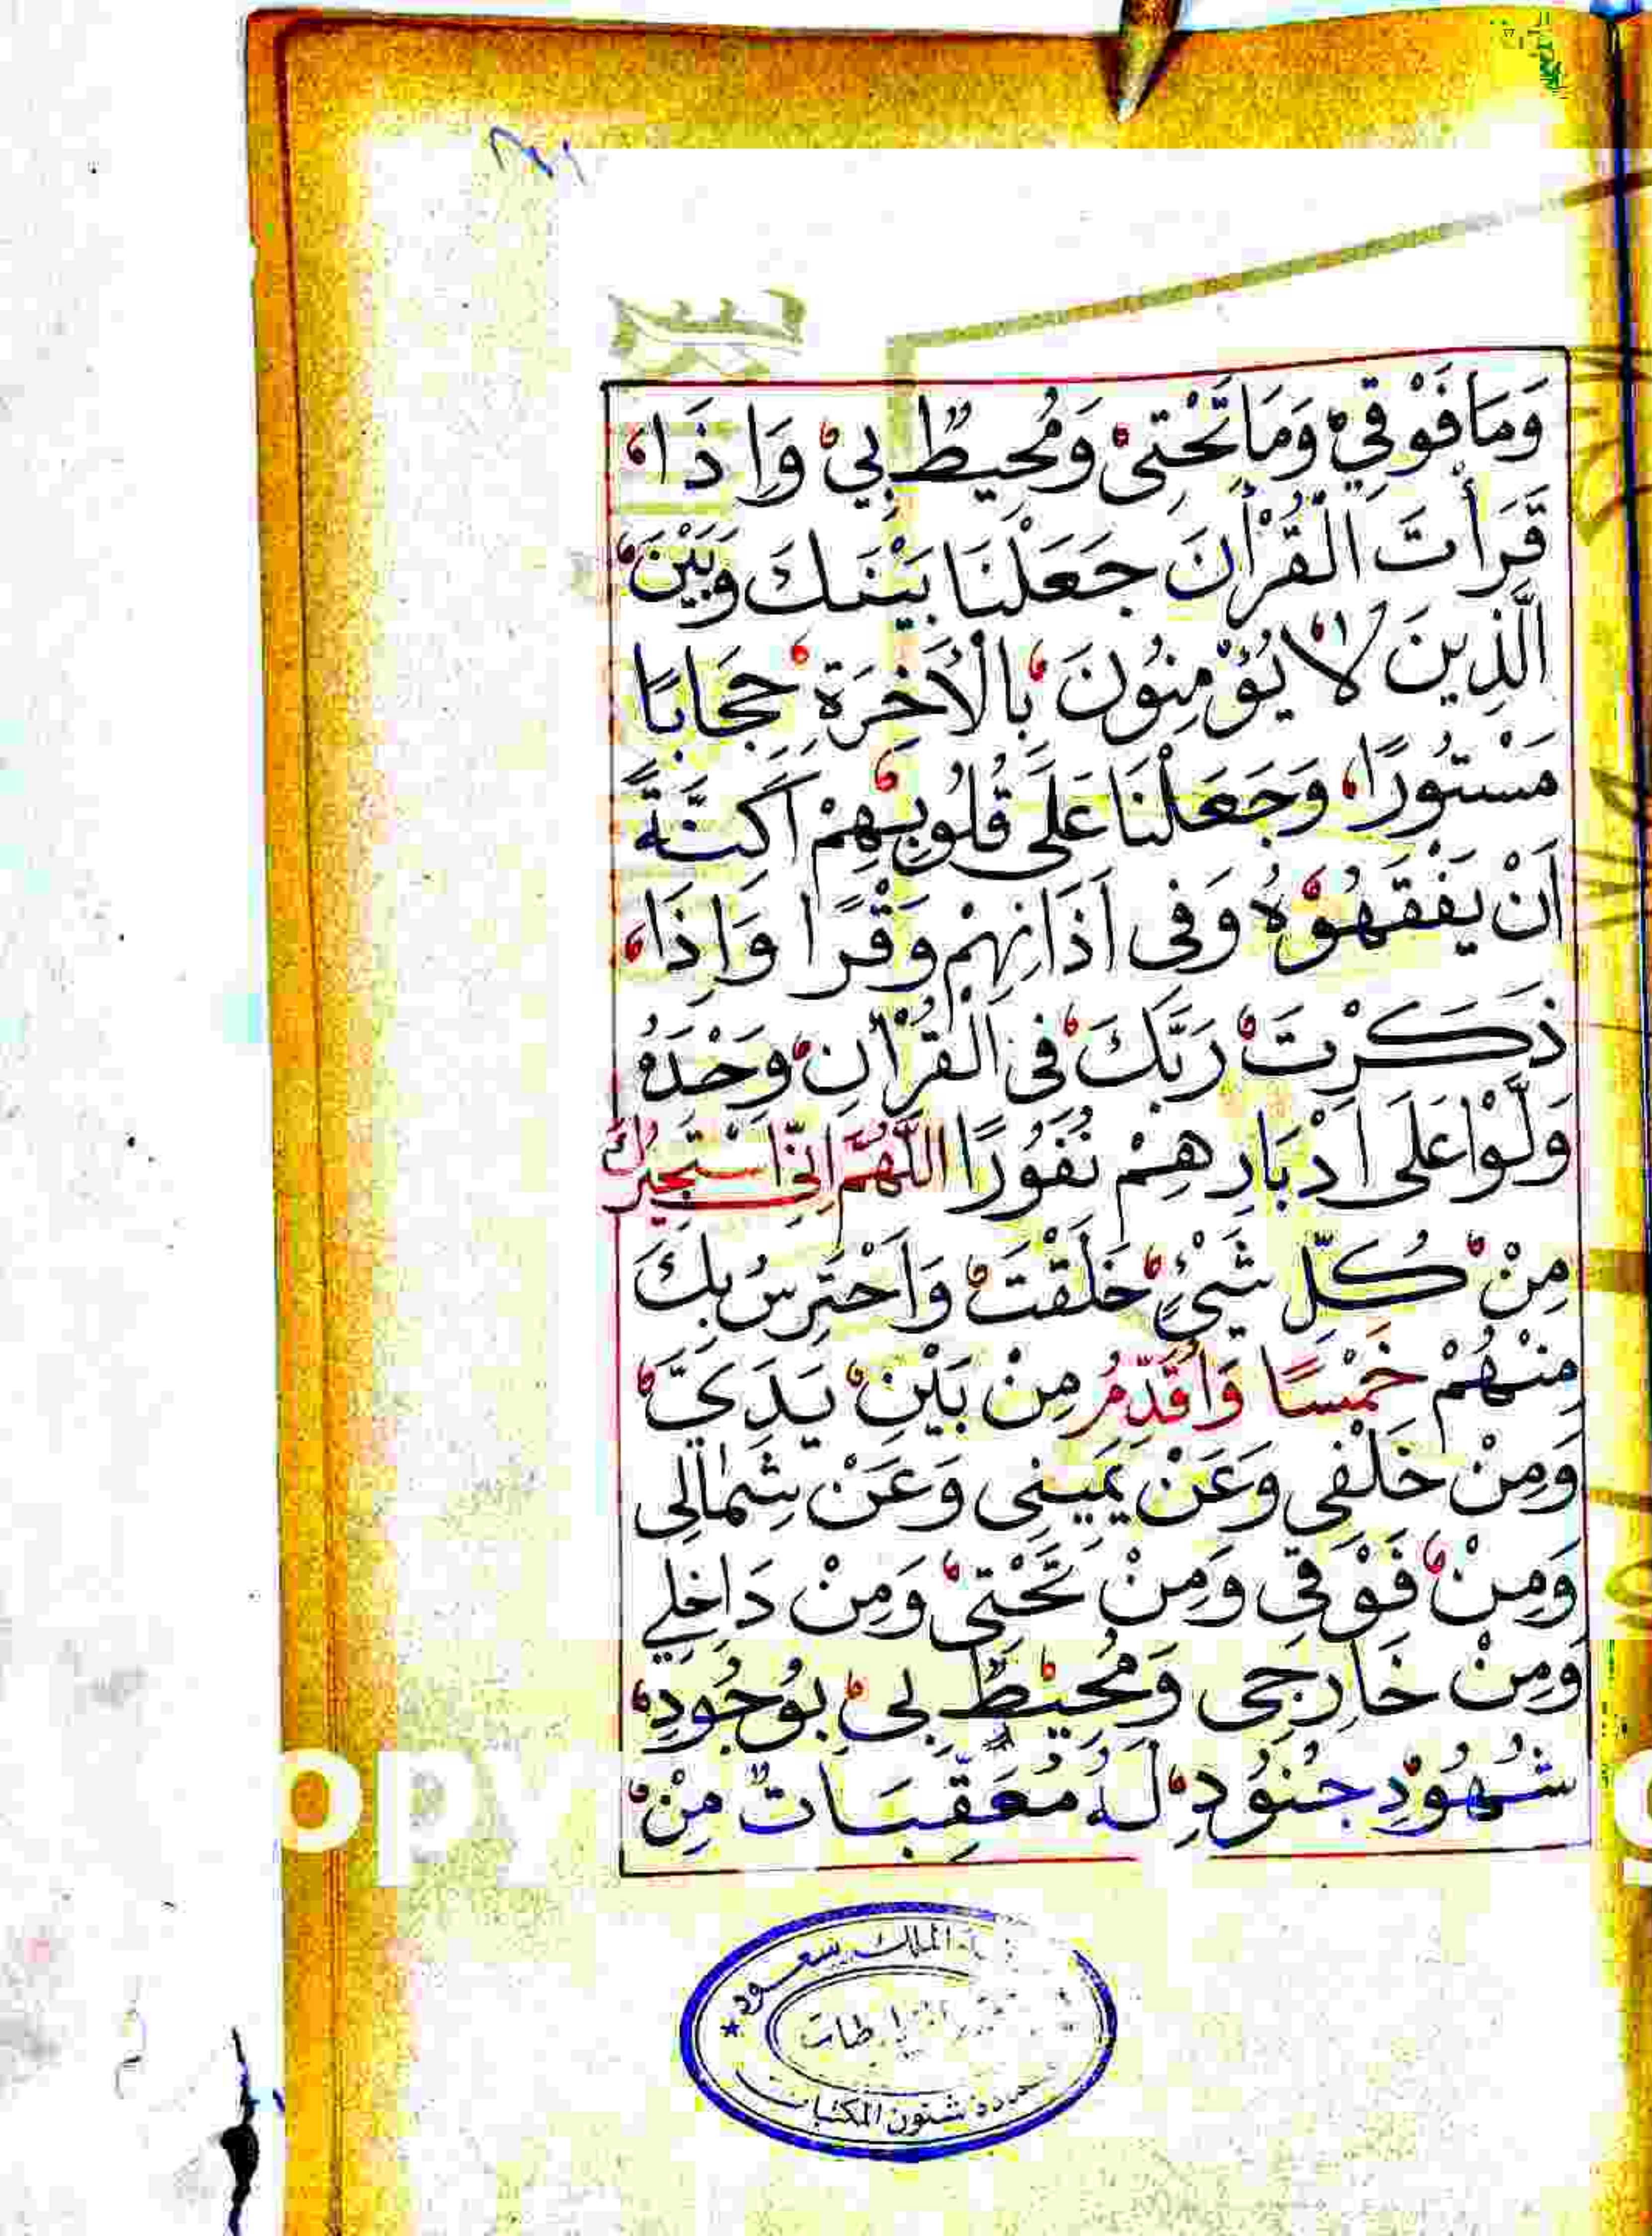 وَمَا فَوْقِيْ وَمَا تَحْتِىْ وَمُحِيطٌ بِيْ وَاِذَا
قَرَأْتَ الْقُرْأٰنَ جَعَلْنَا بَيْنَكَ وَبَيْنَ
الَّذِينَ لَا يُؤْمِنُونَ بِالْأَخِرَةِ حِجَابًا
مَسْتُورًا وَجَعَلْنَا عَلَى قُلُوبِهِمْ اَكِنَّةً
اَنْ يَفْقَهُوْهُ وَفِى اَذَانِهِمْ وَقْرًا وَاِذَا
ذَكَرْتَ رَبَّكَ فِى الْقُرْأٰنِ وَحْدَهُ
وَلَّوْا عَلَى اَدْبَارِهِمْ نُفُورًا اَللّٰهُمَّ اِنِّى اَسْتَجِيرُكَ
مِنْ كُلِّ شَيْءٍ خَلَقْتَ وَاَحْتَرِسُ بِكَ
مِنْهُمْ خَمْسًا وَاُقَدِّمُ مِنْ بَيْنِ يَدَيَّ
وَمِنْ خَلْفِى وَعَنْ يَمِينِى وَعَنْ شِمَالِى
وَمِنْ فَوْقِى وَمِنْ تَحْتِىْ وَمِنْ دَاخِلِي
وَمِنْ خَارِجِى وَمُحِيْطٌ بِى بِوُجُودِ
شُهُوْدِ جُنُوْدِ لَهُ مُعَقِّبَاتٌ مِنْ
الملك سعود
شئون المكتبات